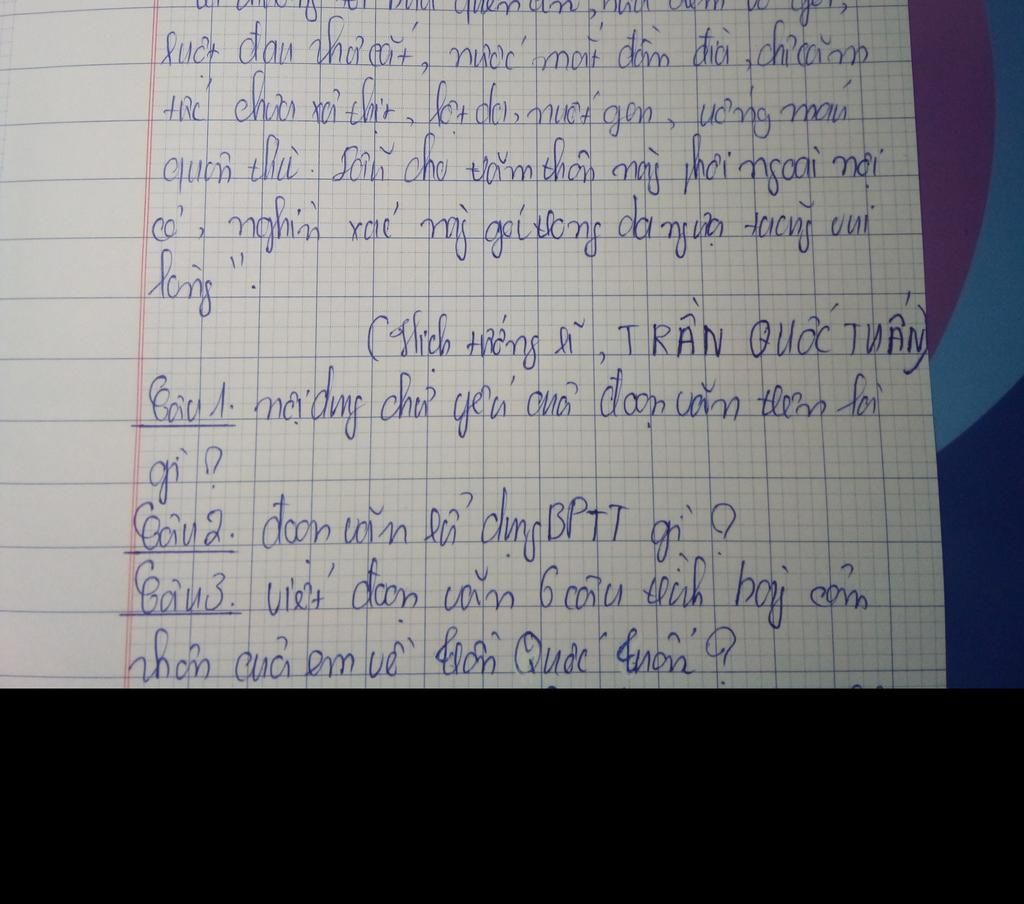 quên ăn, nửa đêm vỗ gối,
ruột đau như cắt, nước mắt đầm đìa, chỉ căm
tức chưa xả thịt, lột da, nuốt gan, uống máu
quân thù. Dẫu cho trăm thân này phơi ngoài nội
cỏ, nghìn xác này gói trong da ngựa ta cũng vui
lòng".
(Hịch tướng sĩ, TRẦN QUỐC TUẤN)
Câu 1. nội dung chủ yếu của đoạn văn trên là
gì?
Câu 2. đoạn văn sử dụng BPTT gì?
Câu 3. viết đoạn văn 6 câu trình bày cảm
nhận của em về trần Quốc tuấn?